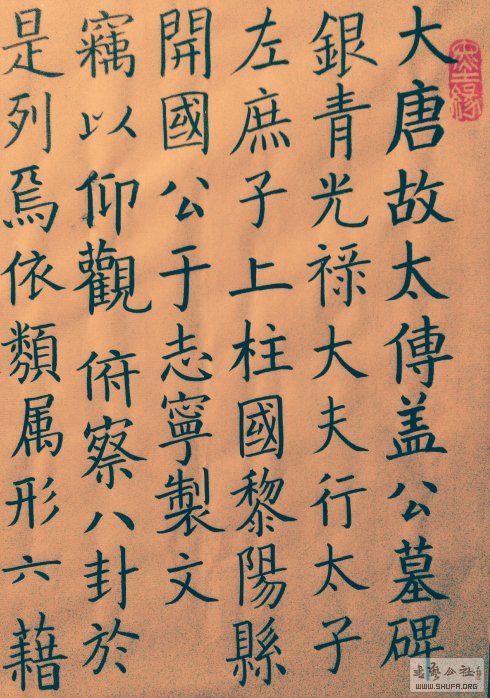 大唐故太傅盖公墓碑
銀青光禄大夫行太子
左庶子上柱國黎陽縣
開國公于志寧製文
竊以仰觀俯察八封於
是列焉依類属形六藉
墨缘
书艺公社
WWW.SHUFA.ORG